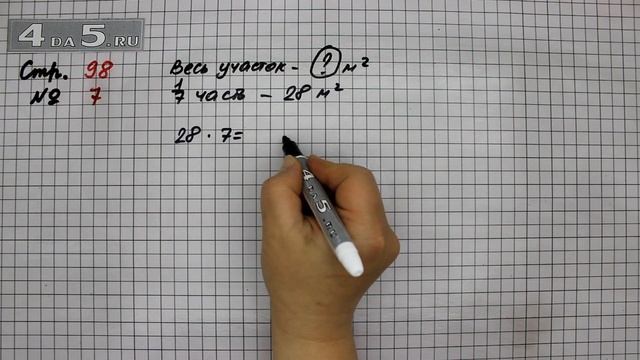 4DA5.RU
Стр. 98
№ 7
Весь участок - ? м²
1/7 часть - 28 м²
28 · 7 =
4DA5.RU